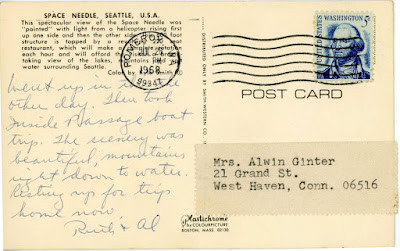 SPACE NEEDLE, SEATTLE, U.S.A.
This spectacular view of the Space Needle was
"painted" with light from a helicopter rising first
up one side and then the other
structure is topped by a
restaurant, which will make
each hour and will afford
taking view of the lakes,
water surrounding Seattle.
Color by
POMEROY
1968
99347
UNITED STATES
WASHINGTON
5
POST CARD
Went up in
other day. Then took
Inside Passage boat
trip. The scenery was
beautiful, mountains
right down to water.
Resting up for trip
home now.
Ruth & Al
Mrs. Alwin Ginter
21 Grand St.
West Haven, Conn. 06516
Plastichrome
BY COLOURPICTURE
BOSTON, MASS. 02130